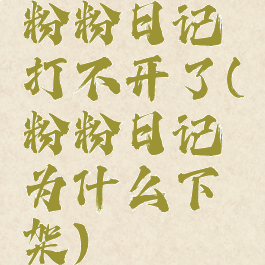 粉粉日记
打不开了(
粉粉日记
为什么下
架)